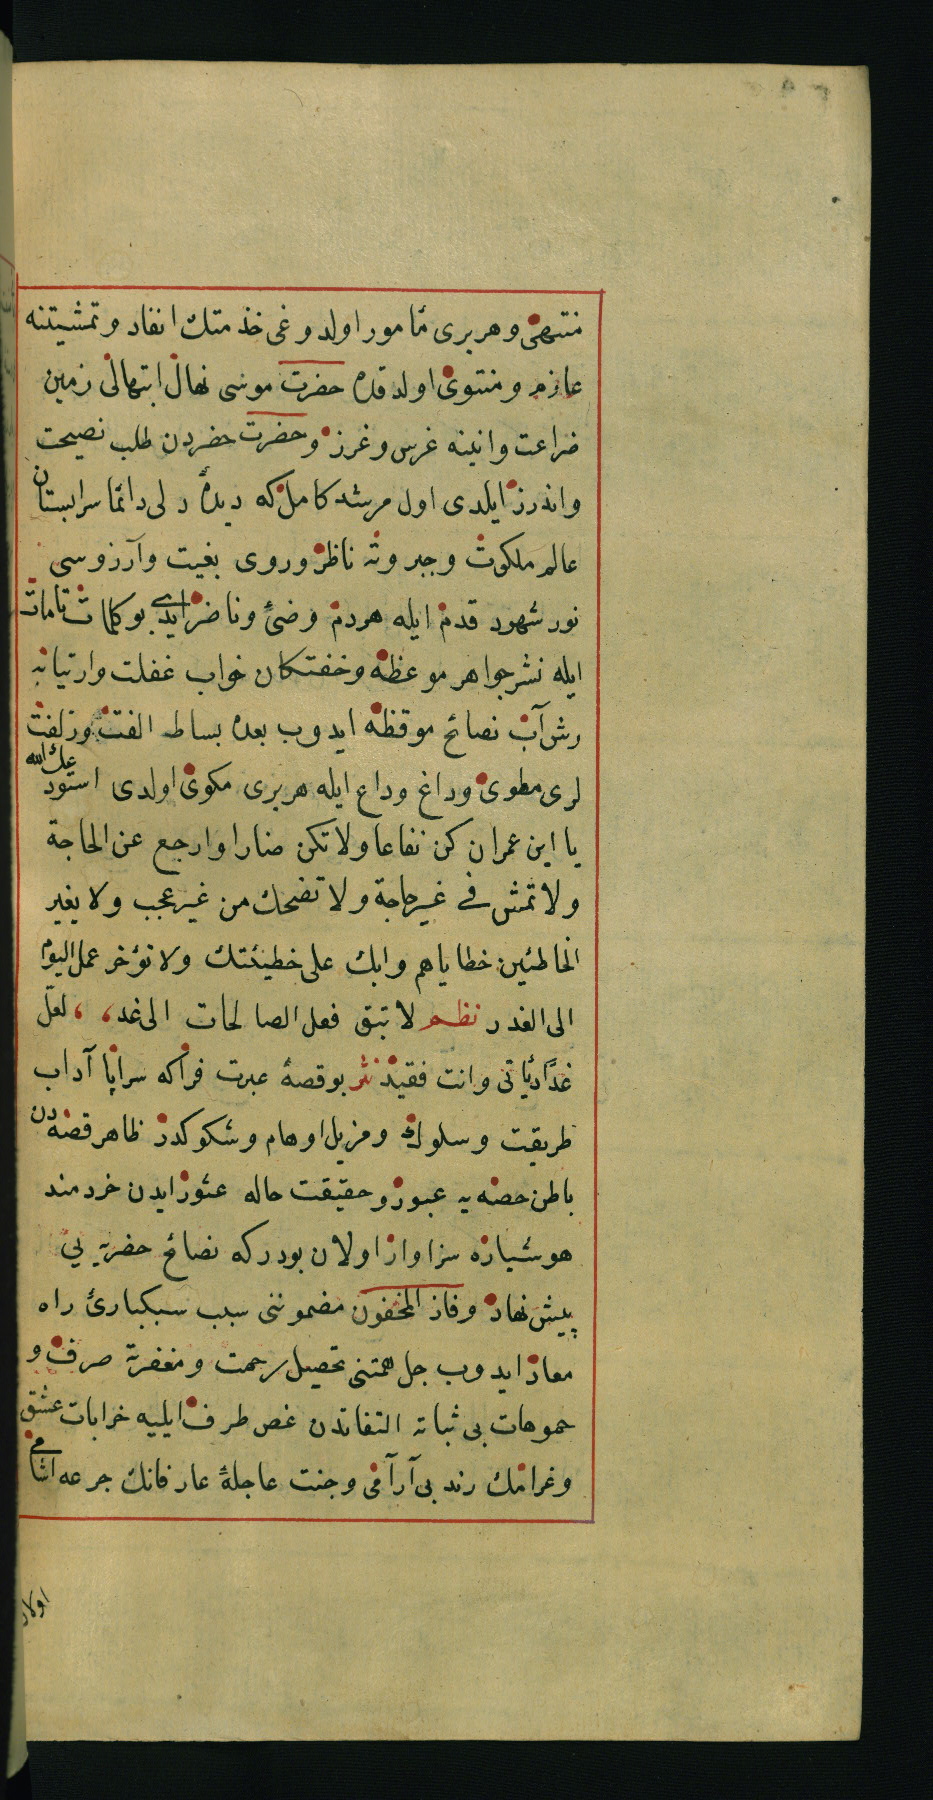 منتهى وهربرى مأمور اولدوغى خذمتك انفاد وتمشيتنه
عازم ومنتوى اولدقده حضرت موسى نهال ابتهالى زمين
ضراعت وانينه غرس وغرز وحضرت خضردن طلب نصيحت
واندرز ايلدى اول مرشد كامل كه ديدۀ دلى دائما سرابستان
عالم ملكوت وجبروته ناظر وروى بغيت وآرزوسى
نور شهود قدم ايله هردم وضئ وناضر ايدى بو كلمات تامات
ايله نشر جواهر موعظه وخفتكان خواب غفلت وارتيابه
رش آب نصائح موقظه ايدوب بعده بساط الفت وزلفت
لرى مطوى وداغ وداع ايله هربرى مكوى اولدى استودعك الله
يا ابن عمران كن نفاعا ولا تكن ضارا وارجع عن الحاجة
ولا تمش فى غير حاجة ولا تضحك من غير عجب ولا يغير
الخاطئين خطاياهم وابك على خطيئتك ولا تؤخر عمل اليوم
الى الغدر نظم لا تبق فعل الصالحات الى غد ، ، لعل
غدًا ياتى وانت فقيد نثر بو قصۀ عبرت فزا كه سراپا آداب
طريقت وسلوك ومزيل اوهام وشكوكدر ظاهر قصه دن
باطن حصه يه عبور وحقيقت حاله عثور ايدن خردمند
هوشياره سزاوار اولان بودركه نصائح خضريه يى
پيش نهاد وفاز المخفون مضموننى سبب سبكبارئ راه
معاد ايدوب جل همتنى تحصيل رحمت ومغفرته صرف و
مموهات بى ثباته التفاتدن غص طرف ايليه خرابات عشق
وغرامك رند بى آرامى وجنت عاجلۀ عارفانك جرعه اشامى
اولان